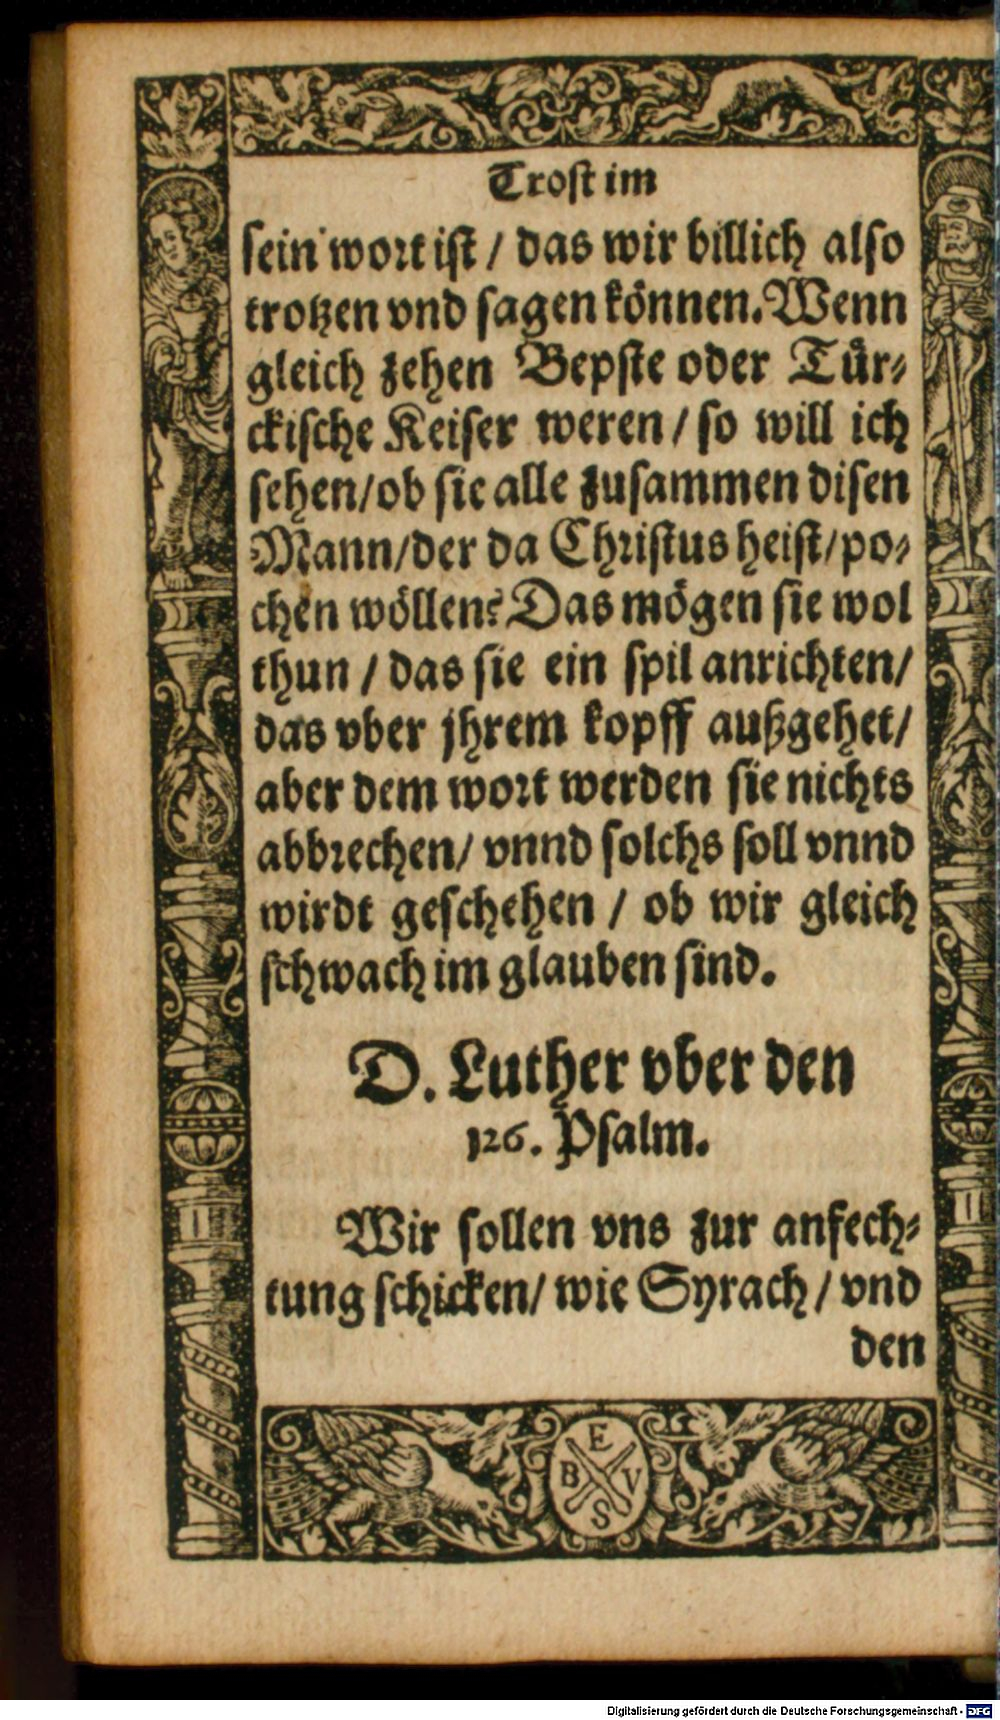 Trost im
sein wort ist / das wir billich also
trotzen vnd sagen können. Wenn
gleich zehen Bepste oder Tür-
ckische Keiser weren / so will ich
sehen / ob sie alle zusammen disen
Mann / der da Christus heist / po-
chen wöllen? Das mögen sie wol
thun / das sie ein spil anrichten /
das vber jhrem kopff außgehet /
aber dem wort werden sie nichts
abbrechen / vnnd solchs soll vnnd
wirdt geschehen / ob wir gleich
schwach im glauben sind.
D. Luther vber den
126. Psalm.
Wir sollen vns zur anfech-
tung schicken / wie Syrach / vnd
den
E
B V
S
Digitalisierung gefördert durch die Deutsche Forschungsgemeinschaft - DFG